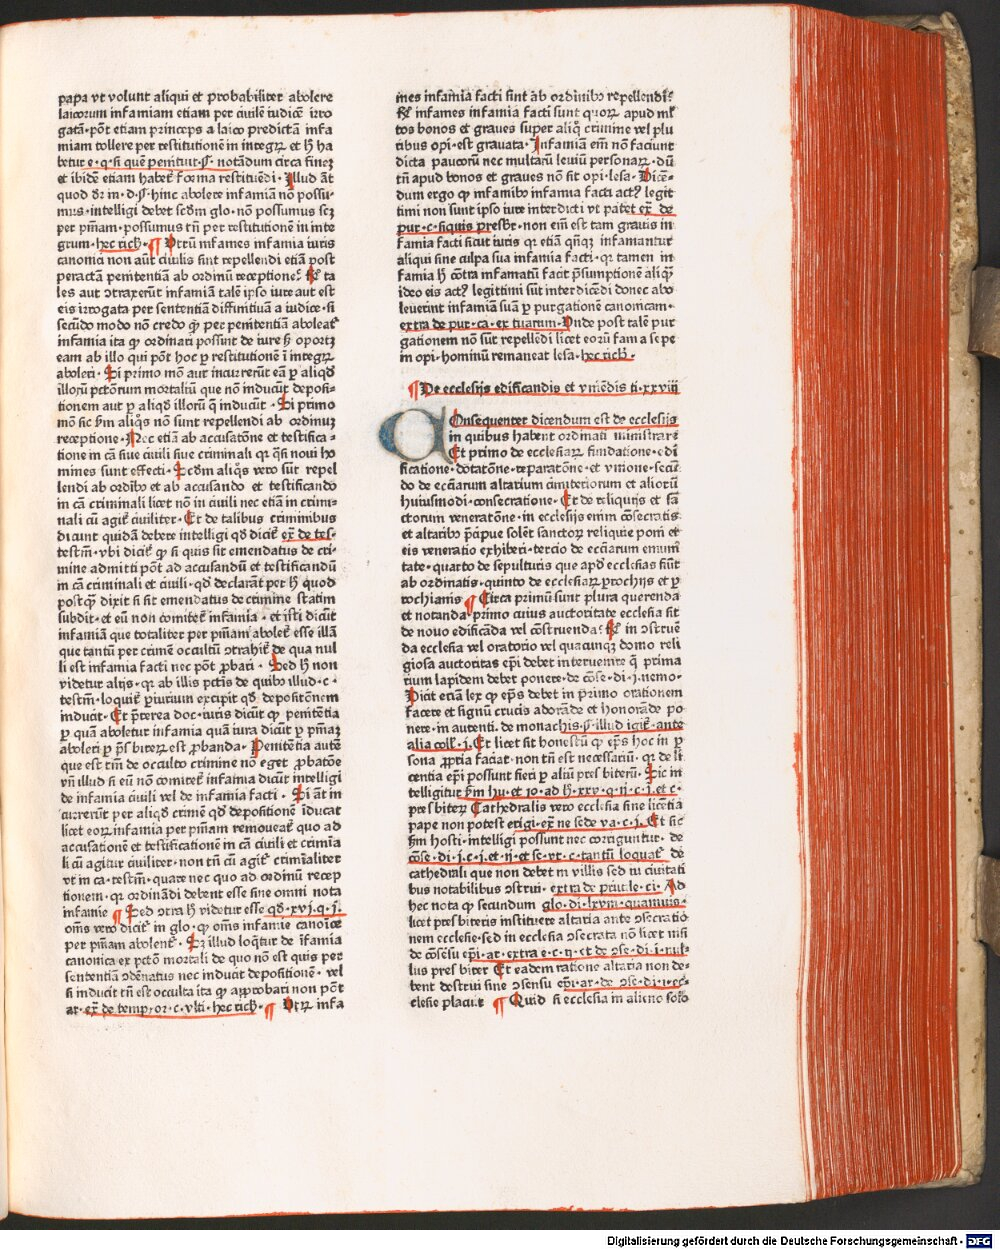 papa vt volunt aliqui et probabiliter abolere
laicorum infamiam etiam per ciuilē iudicē irro
gatā· pōt etiam princeps a laico predictā infa
miam tollere per restitutionem in integꝝ et h̄ ha
betur e· q· si quē penituit· §· notādum circa finez
et ibidē etiam habet᷑ forma restituēdi· Illud āt
quod dr̄ in· d· §· hinc abolere infamiā nō possu⸗
mus· intelligi debet scd̄m glo· nō possumus scꝫ
per pn̄iam· possumus tn̄ per restitutionem in inte
grum· hec rich· ¶ Vtrū infames infamia iuris
canonici non aūt ciuilis sint repellendi etiā post
peractam penitentiā ab ordinū receptione? R̄ ta
les aut ɔtraxerūt infamiā talē ipso iure aut est
eis irrogata per sententiā diffinitiuā a iudice· si
secūdo modo nō credo ꝙ per penitentiā aboleat᷑
infamia ita ꝙ ordinari possint de iure sꝫ oportꝫ
eam ab illo qui pōt hoc ꝑ restitutionē ī integꝝ
aboleri· Si primo mō aut incurrerūt eā ꝑ aliqd̄
illoꝝ pctōrum mortaliū que nō inducūt deposi⸗
tionem aut ꝑ aliqd̄ illoꝝ q̄ inducūt· Si primo
mō sic scd̄m aliq̄s nō sunt repellendi ab ordinuꝫ
receptione· Nec etiā ab accusatōne et testifica⸗
tione in cā siue ciuili siue criminali qꝛ q̄si noui ho
mines sunt effecti· Scd̄m aliq̄s vero sūt repel
lendi ab ordibꝰ et ab accusando et testificando
in cā criminali licet nō in ciuili nec etiā in crimi⸗
nali cū agit᷑ ciuiliter· Et de talibus criminibus
dicunt quidā debere intelligi qd̄ dicit᷑ ex̄ de tes⸗
testm̄· vbi dicit᷑ ꝙ si quis sit emendatus de cri⸗
mine admitti pōt ad accusandū et testificandū
in cā criminali et ciuili· qd̄ declarāt per h̄ quod
postq̄ꝫ dixit si sit emendatus de crimine statim
subdit· et eū non comitet᷑ infamia· et isti dicūt
infamiā que totaliter per pn̄iam abolet᷑ esse illā
que tantū per crimē occultū ɔtrahit᷑ de qua nul
li est infamia facti nec pōt ꝓbari· Sed h̄ non
videtur alijs· qꝛ ab illis pctīs de quibꝰ illud· c·
testm̄· loquit᷑ ꝑiurium excipit qd̄ depositōnem
inducit· Et p̄terea doc· iuris dicūt ꝙ penitētia
ꝑ quā aboletur infamia quā iura dicūt ꝑ pn̄iaꝫ
aboleri ꝑ p̄sbiterꝫ est ꝓbanda· Penitētia autē
que est tm̄ de occulto crimine nō eget ꝓbatōe
vn̄ illud si eū nō comitet᷑ infamia dicūt intelligi
de infamia ciuili vel de infamia facti· Si āt in
currerūt per aliqd̄ crimē qd̄ depositionē īducat
licet eoꝝ infamia per pn̄iam remoueat᷑ quo ad
accusationē et testificationē in cā ciuili et crimīa
li cū agitur ciuiliter· non tn̄ cū agit᷑ crimīaliter
vt in ca· testm̄· quare nec quo ad ordinū recep
tionem· qꝛ ordinādi debent esse sine omni nota
infamie ¶ Sed ɔtra h̄ videtur esse qd̄· xvj· q· j·
om̄s vero dicit᷑ in glo· ꝙ om̄s infamie canoīce
per pn̄iam abolent᷑· Sꝫ illud loq̄tur de īfamia
canonica ex pctō mortali de quo nō est quis per
sententiā ɔdēnatus nec inducit depositionē· vel
si inducit tn̄ est occulta ita ꝙ aꝓbari non pōt
ar· ex̄ de temp̄· or· c· vlti· hec rich· ¶ Vtꝝ infa
mes infamia facti sint ab ordinibꝰ repellendi?
R̄ infames infamia facti sunt quoꝝ apud ml̓
tos bonos et graues super aliq̄ crimine vel plu
ribus opi· est grauata· Infamiā em̄ nō faciunt
dicta paucorū nec multarū leuiū personaꝝ· dū
tn̄ apud bonos et graues nō sit opi· lesa· Dicē⸗
dum ergo ꝙ infamibꝰ infamia facti actꝰ legit
timi non sunt ipso iure interdicti vt patet ex̄· de
pur· c· siquis presbr̄· non em̄ est tam grauis in
famia facti sicut iuris qꝛ etiā qn̄qꝫ infamantur
aliqui sine culpa sua infamia facti· qꝛ tamen in
famia h̄ cōtra infamatū facit p̄sumptionē aliq̄ꝫ
ideo eis actꝰ legitimi sūt interdicēdi donec abo
leuerint infamiā suā ꝑ purgationē canonicam·
extra de pur· ca· ex tuarum· Vnde post talē pur
gationem nō sūt repellēdi licet eorū fama sepe
in opi· hominū remaneat lesa· hec rich·
¶ De ecclesijs edificandis et vniēdis ti· xxviij
COnsequenter dicendum est de ecclesijs
in quibus habent ordinati ministrare
Et primo de ecclesiaꝝ fundatione· edi
ficatione· dotatōne· reparatōne· et vnione· secū
do de ecc̄iarum altarium cimiteriorum et aliorū
huiusmodi· consecratione· Et de reliquijs et sā
ctorum veneratōne· in ecclesijs enim cōsecratis
et altaribꝰ p̄cipue solēt sanctoꝝ reliquie poni et
eis veneratio exhiberi· tercio de ecc̄iarum emuni
tate· quarto de sepulturis que apd̄ ecclesias fiūt
ab ordinatis· quinto de ecclesiaꝝ prochijs et ꝑ
rochianis ¶ Circa primū sunt plura querenda
et notanda· primo cuius auctoritate ecclesia sit
de nouo edificāda vel cōstruenda? R̄ in ɔstruē
da ecclesia vel oratorio vel quacunqꝫ domo reli
giosa auctoritas ep̄i debet interuenire q̄ prima
rium lapidem debet ponere· de cōse· di· j· nemo·
Dicit etiā lex ꝙ ep̄s debet in primo orationem
facere et signū crucis adorāde et honorāde po
nere· in autenti· de monachis· §· illud igit᷑· ante
alia coll· j· Et licet sit honestū ꝙ ep̄s hoc in ꝑ
sona ꝓpria faciat· non tn̄ est necessariū· qꝛ de li
centia ep̄i possunt fieri ꝑ aliū presbiterū· Sic in
telligitur scd̄m hu· et io· ad h̄· xxv· q· ij· c· j· et c·
presbiterꝫ Cathedralis vero ecclesia sine licētia
pape non potest erigi· ex̄ ne sede va· c· j· Et sic
scd̄m hosti· intelligi possunt nec corriguntur· de
cōse· di· j· c· j· et· ij· et se· vr· c· tantū loquat᷑ de
cathedrali que non debet in villis sed in ciuitati
bus notabilibus ɔstrui· extra de priui· le· ci· Ad
hec nota ꝙ secundum glo· di· lxviij· quamuis·
licet presbiteris instituere altaria ante ɔsecratiō
nem ecclesie· sed in ecclesia ɔsecrata nō licet nisi
de cōsēsu ep̄i· ar· extra e· c· ij· et de ɔse· di· i· nul⸗
lus presbiter Et eadem ratione altaria non de⸗
bent destrui sine ɔsensu ep̄i· ar· de ɔse· di· i· ec⸗
clesie placuit ¶ Quid si ecclesia in alieno solo
Digitalisierung gefördert durch die Deutsche Forschungsgemeinschaft - DFG